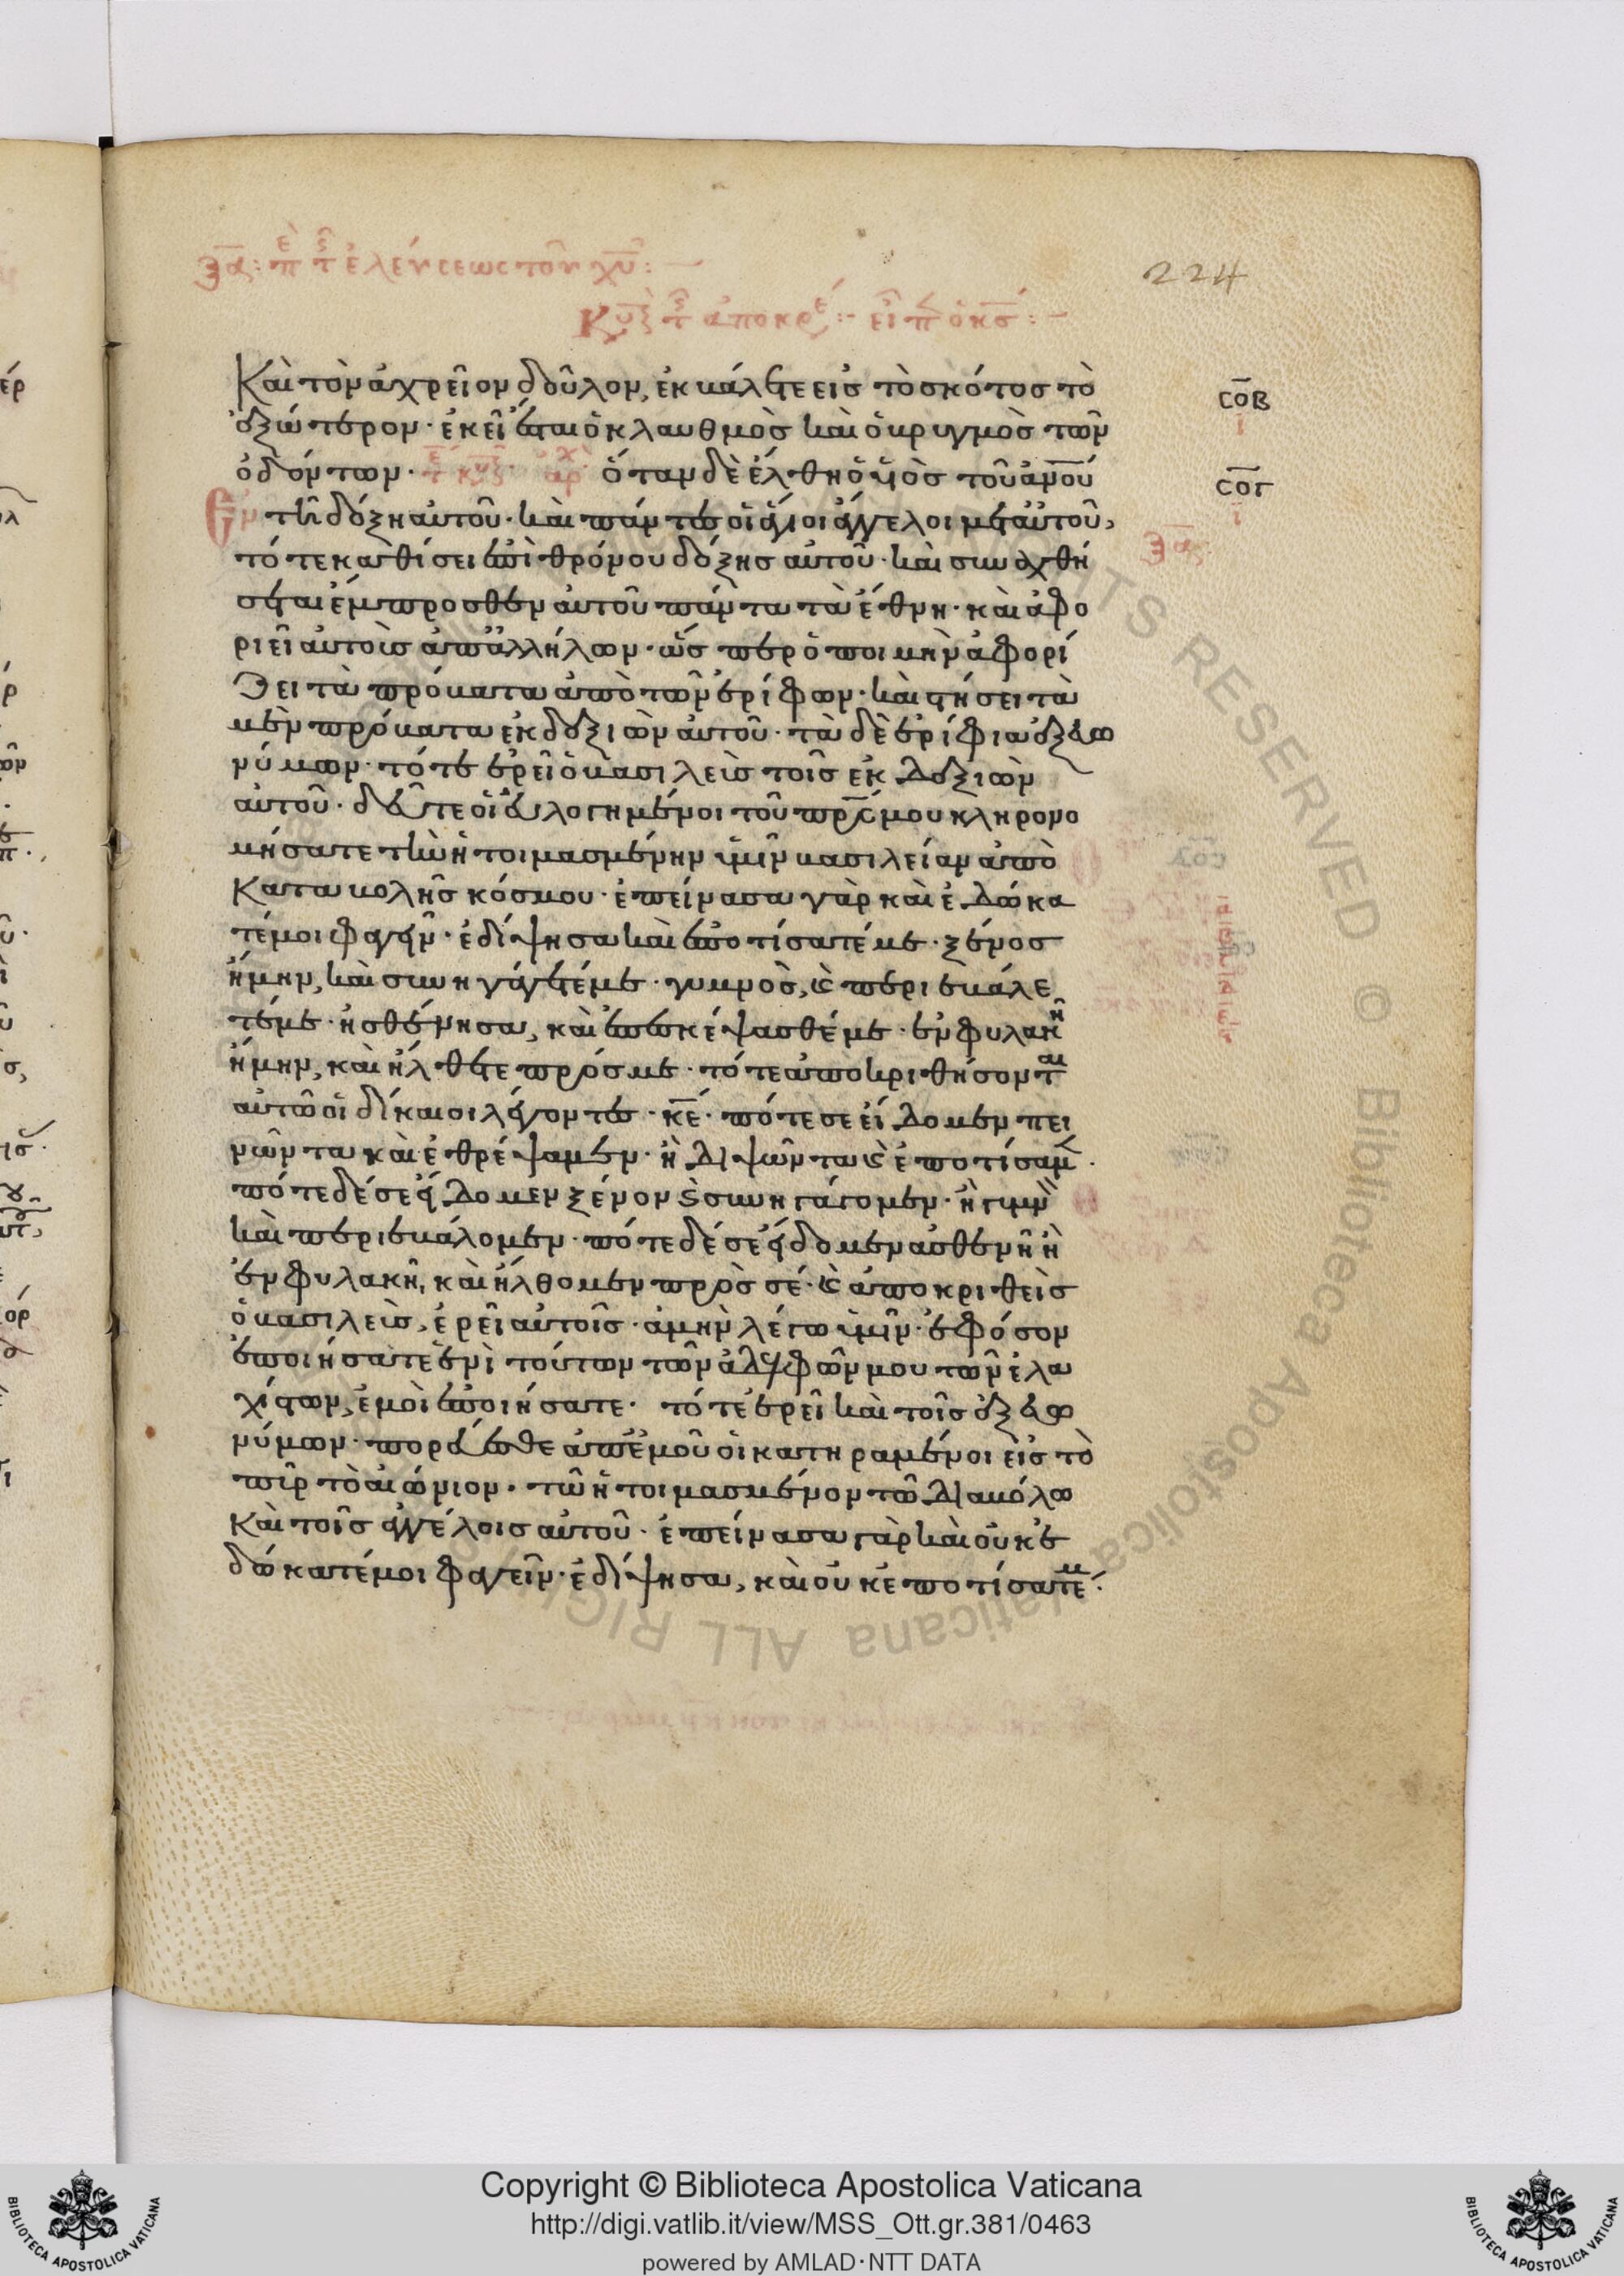 ϟα: πε τς ελεύσεως τοῦ χυ:
Κυ τς ἀποκρε: εἶπ ὁ κς:
224
Καὶ τὸν ἀχρεῖον δοῦλον, ἐκβάλετε εἰς τὸ σκότος τὸ
ἐξώτερον· ἐκεῖ ἔσται ὁ κλαυθμὸς καὶ ὁ βρυγμὸς τῶν
σοβ
ὀδόντων· ὅταν δὲ ἔλθη ὁ υἱὸς τοῦ ανου
σογ
Ἐν τῆ δόξη αὐτοῦ· καὶ πάντες οἱ ἅγιοι ἄγγελοι μετ αὐτοῦ,
τότε καθίσει ἐπὶ θρόνου δόξης αὐτοῦ· καὶ συναχθή
ϟα
σεται ἔμπροσθεν αὐτοῦ πάντα τὰ ἔθνη· καὶ ἀφο
ριεῖ αὐτοὺς ἀπ ἀλλήλων· ὥσπερ ὁ ποιμὴν ἀφορί
ζει τὰ πρόβατα ἀπὸ τῶν ἐρίφων· καὶ στήσει τὰ
μὲν πρόβατα ἐκ δεξιῶν αὐτοῦ· τὰ δὲ ἐρίφια ἐξ εὐω
νύμων· τότε ἐρεῖ ὁ βασιλεὺς τοῖς ἐκ δεξιῶν
αὐτοῦ· δεῦτε οἱ εὐλογημένοι τοῦ πρς μου κληρονο
μήσατε τὴν ἡτοιμασμένην ὑμῖν βασιλείαν ἀπὸ
καταβολῆς κόσμου· ἐπείνασα γὰρ καὶ ἐδώκα
τέ μοι φαγεῖν· ἐδίψησα καὶ ἐποτίσατέ με· ξένος
ἤμην, καὶ συνηγάγετέ με· γυμνὸς, καὶ περιεβάλε
τέ με· ἠσθένησα, καὶ ἐπεσκέψασθέ με· ἐν φυλακῆ
ἤμην, καὶ ἤλθετε πρός με· τότε ἀποκριθήσονται
αὐτῶ οἱ δίκαιοι λέγοντες· κε· πότε σε εἴδομεν πει
νῶντα καὶ ἐθρέψαμεν· ἢ διψῶντα καὶ ἐποτίσαμεν·
πότε δέ σε εἴδομεν ξένον καὶ συνηγάγομεν· ἢ γυμν
καὶ περιεβάλομεν· πότε δέ σε εἴδομεν ἀσθενῆ ἢ
ἐν φυλακῆ, καὶ ἤλθομεν πρὸς σέ· καὶ ἀποκριθεὶς
ὁ βασιλεὺς, ἐρεῖ αὐτοῖς· ἀμὴν λέγω ὑμῖν· ἐφ όσον
ἐποιήσατε ἑνὶ τούτων τῶν ἀδελφῶν μου τῶν ἐλα
χίστων, ἐμοὶ ἐποιήσατε· τότε ἐρεῖ καὶ τοῖς ἐξ εὐω
νύμων· πορεύεσθε ἀπ ἐμοῦ οἱ κατηραμένοι εἰς τὸ
πῦρ τὸ αἰώνιον· τῶ ἡτοιμασμένον τῶ διαβόλω
καὶ τοῖς ἀγγέλοις αὐτοῦ· ἐπείνασα γὰρ καὶ οὐκ ἐ
δώκατέ μοι φαγεῖν· ἐδίψησα, καὶ οὐκ ἐποτίσατέ μ·
Copyright © Biblioteca Apostolica Vaticana
http://digi.vatlib.it/view/MSS_Ott.gr.381/0463
powered by AMLAD·NTT DATA